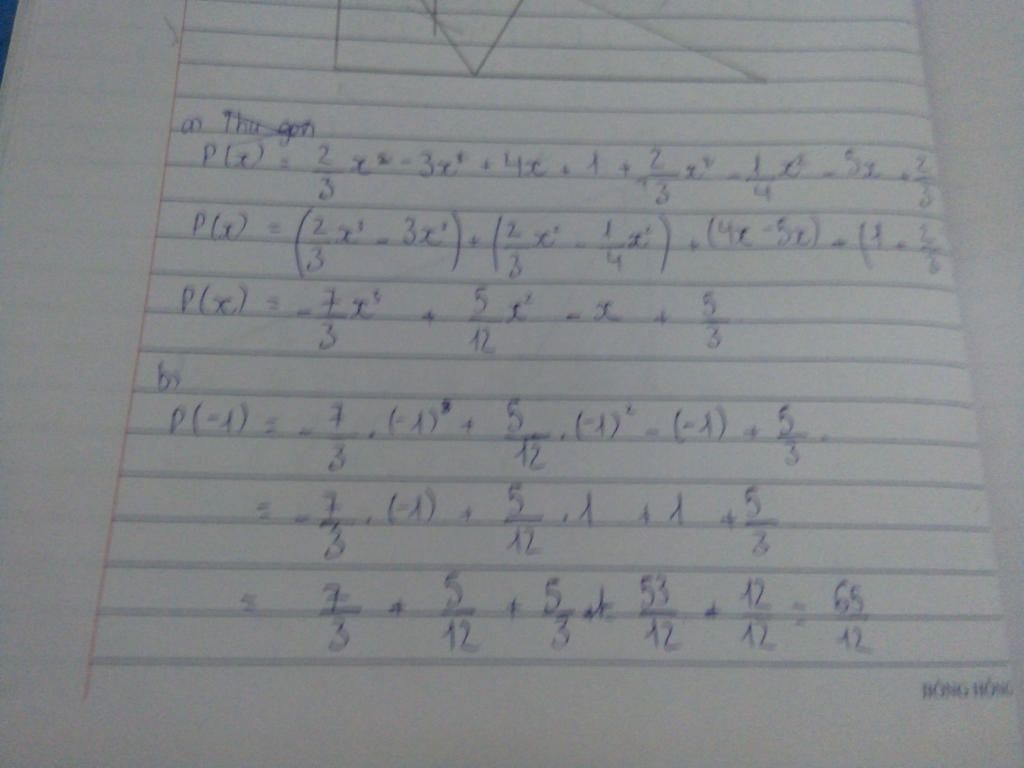 a) Thu gọn
P(x) = 2/3 x³ - 3x³ + 4x + 1 + 2/3 x² - 1/4 x² - 5x + 2/3
P(x) = (2/3 x³ - 3x³) + (2/3 x² - 1/4 x²) + (4x - 5x) + (1 + 2/3
P(x) = - 7/3 x³ + 5/12 x² - x + 5/3
b)
P(-1) = - 7/3 . (-1)³ + 5/12 . (-1)² - (-1) + 5/3 .
= - 7/3 . (-1) + 5/12 . 1 + 1 + 5/3
= 7/3 + 5/12 + 5/3 + 1 = 53/12 + 12/12 = 65/12
HỒNG HỒNG